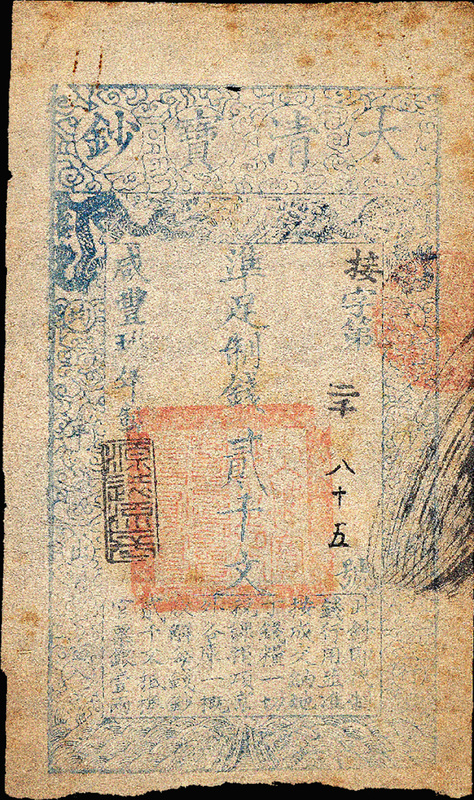 大清寶鈔
接字第 二千 八十五 號
準足制錢貳千文
咸豐年製
鈔即代制
錢行用並准
按成交納地
丁錢糧一切
稅課捐項京
外各庫一概
收解每錢鈔
貳千文抵換
官票銀壹兩